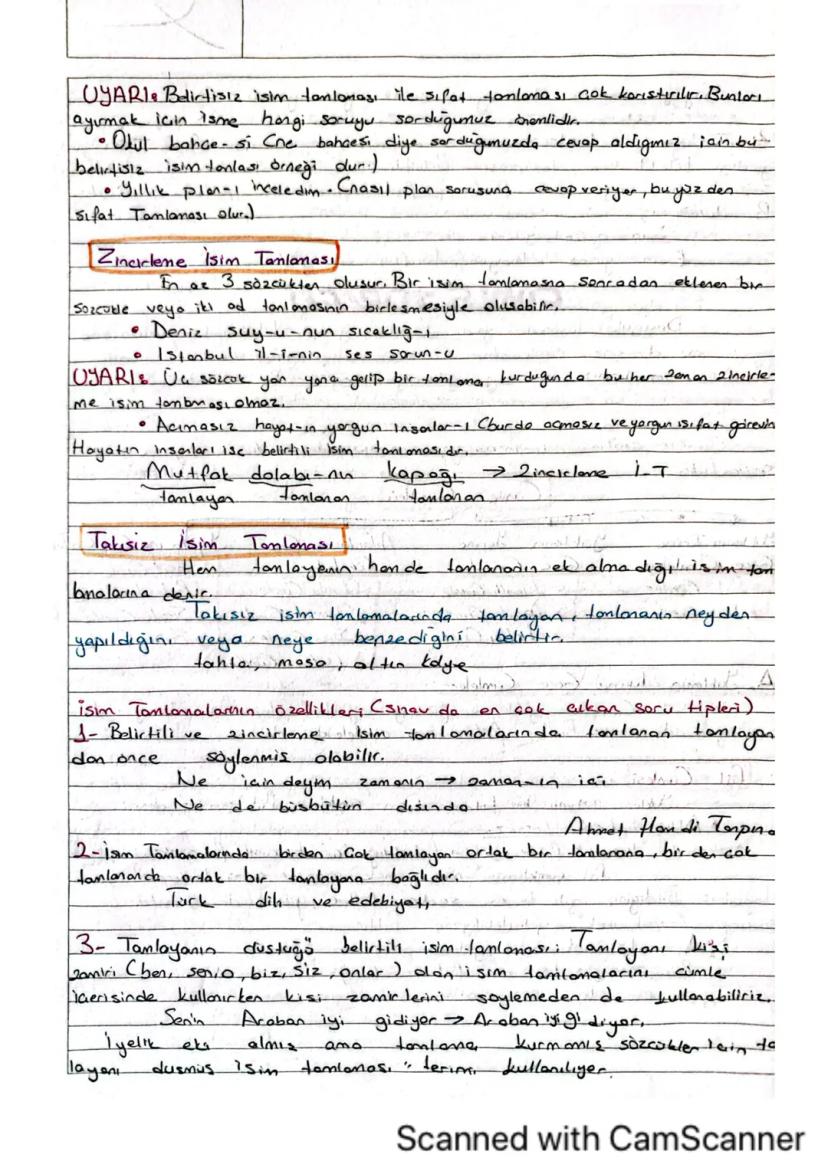 UYARI: Belirtisiz isim tamlaması ile sıfat tamlaması çok karıştırılır. Bunları
ayırmak için isme hangi soruyu sorduğumuz önemlidir.
• Okul bahçe-si (ne bahçesi diye sorduğumuzda cevap aldığımız için bu
belirtisiz isim tamlası örneği olur.)
• Yıllık plan-ı inceledim. (nasıl plan sorusuna cevap veriyor, bu yüzden
sıfat Tamlaması olur.)
Zincirleme İsim Tamlaması
En az 3 sözcükten oluşur. Bir isim tamlamasına sonradan eklenen bir
sözcükle veya iki ad tamlamasının birleşmesiyle oluşabilir.
• Deniz suy-u-nun sıcaklığ-ı
• İstanbul il-i-nin ses sorun-u
UYARI: Üç sözcük yan yana gelip bir tamlama kurduğunda bu her zaman zincirle-
me isim tamlaması olmaz.
• Acımasız hayat-ın yorgun insanlar-ı (burda acımasız ve yorgun sıfat görevin
Hayatın insanları ise belirtili isim tamlamasıdır.
Mutfak dolabı-nın kapağı → zincirleme İ-T
tamlayan tamlanan tamlanan
Takısız İsim Tamlaması
Hem tamlayanın hem de tamlananın ek almadığı isim tam
lmalarına denir.
Takısız isim tamlamalarında tamlayan, tamlananın neyden
yapıldığını veya neye benzediğini belirtir.
tahta masa, altın kolye
İsim Tamlamalarının özellikleri (sınav da en çok çıkan soru tipleri)
1- Belirtili ve zincirleme isim tamlamalarında tamlanan tamlayan
dan önce söylenmiş olabilir.
Ne içindeyim zamanın → zaman-ın içi
Ne de büsbütün dışında
Ahmet Hamdi Tanpına
2- İsim Tamlamalarında birden çok tamlayan ortak bir tamlanana, birden çok
tamlananda ortak bir tamlayana bağlıdır.
Türk dili ve edebiyatı
3- Tamlayanın düştüğü belirtili isim tamlaması: Tamlayanı kişi
zamiri (ben, sen, o, biz, siz, onlar) olan isim tamlamalarını cümle
içerisinde kullanırken kişi zamirlerini söylemeden de kullanabiliriz.
Senin Araban iyi gidiyor → Araban iyi gidiyor.
İyelik eki almış ama tamlama kurmamış sözcükler için ta
layanı düşmüş isim tamlaması" terimi kullanılıyor.
Scanned with CamScanner